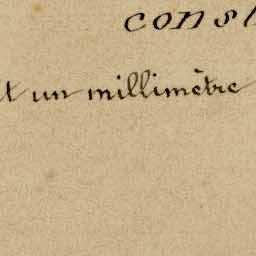 const
t un millimètre